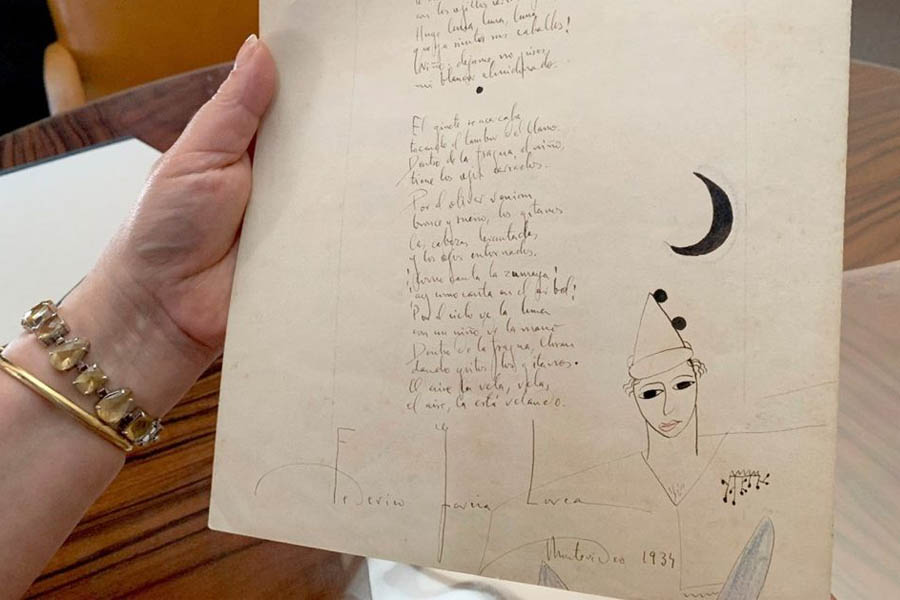 con los ojillos
Huye luna, luna, luna
que ya siento sus caballos!
Niño, dejame, no pises,
mi blancor almidonado.
El ginete se acercaba
tocando el tambor del llano.
Dentro de la fragua, el niño,
tiene los ojos cerrados.
Por el olivar venian
bronce y sueño, los gitanos
las cabezas levantadas
y los ojos entornados.
¡Como canta la zumaya!
¡ay como canta en el arbol!
Por el cielo va la luna
con un niño de la mano
Dentro de la fragua, lloran
dando gritos, los gitanos.
El aire la vela, vela,
el aire, la está velando.
Federico García Lorca
Montevideo 1934